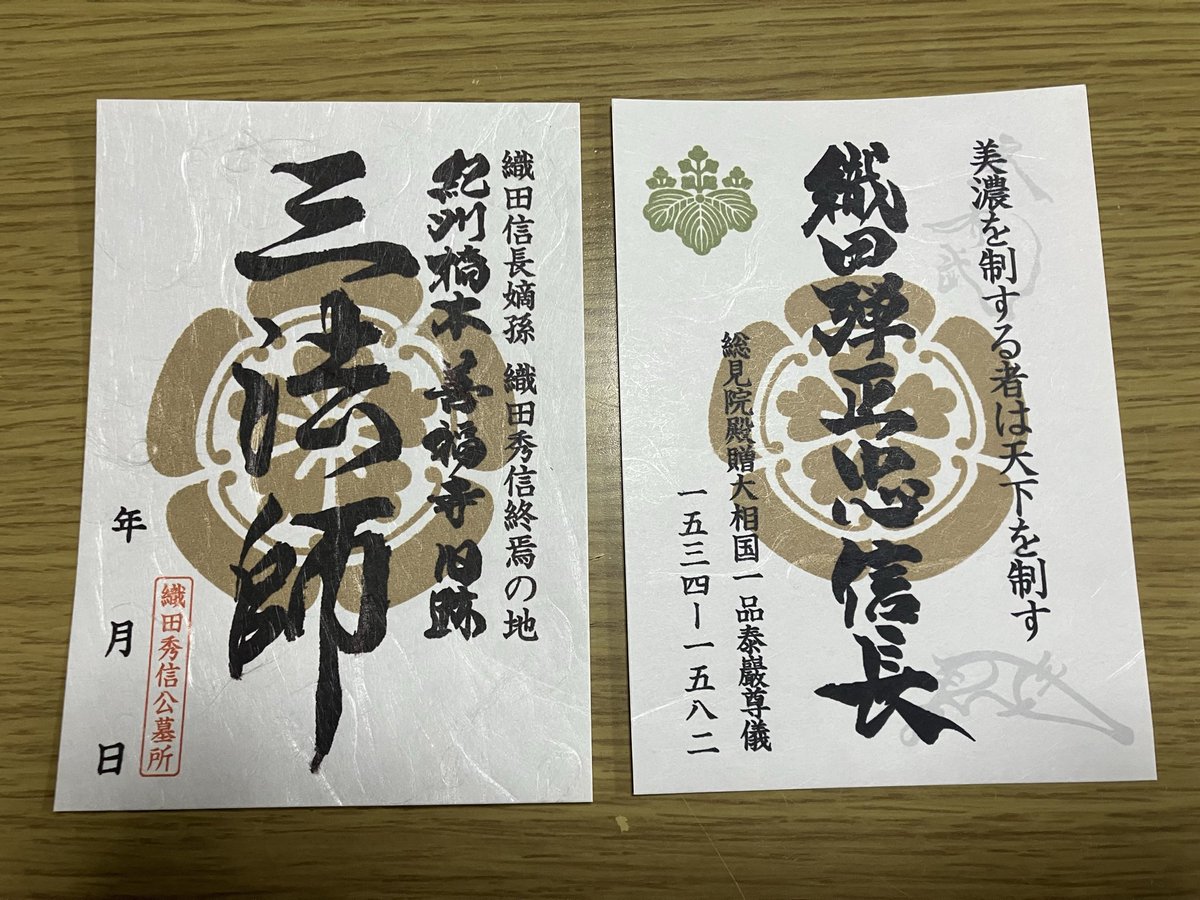 織田信長嫡孫 織田秀信終焉の地
紀州橋本 善福寺旧跡
三法師
年 月 日
織田秀信公墓所
美濃を制する者は天下を制す
織田弾正忠信長
総見院殿贈大相国一品泰巌尊儀
一五三四ー一五八二